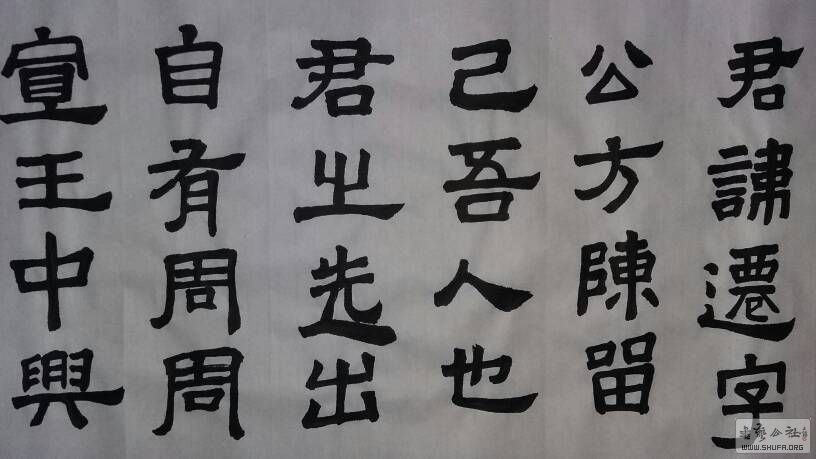 君諱遷字
公方陳留
己吾人也
君之先出
自有周周
宣王中興
书艺公社
WWW.SHUFA.ORG